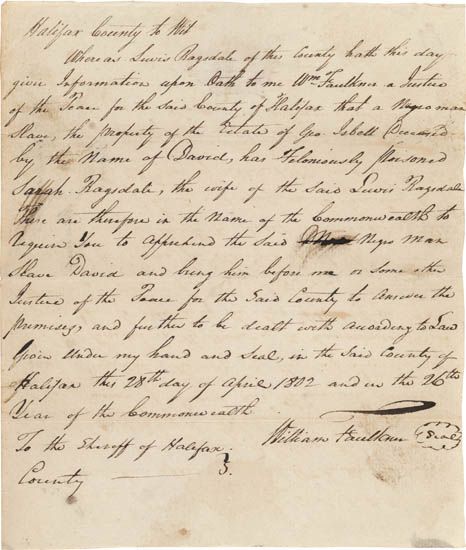 Halifax County to Wit
Whereas Lewis Ragsdale of the County hath this day
given Information upon Oath to me Wm. Faulkner a Justice
of the Peace for the Said County of Halifax that a Negro man
Slave, the property of the Estate of Geo. Isbell Deceased
by the Name of David, has Feloniously poisoned
Sarah Ragsdale, the wife of the Said Lewis Ragsdale
These are therefore in the Name of the Commonwealth to
require You to apprehend the said Negro man
Slave David and bring him before me or some other
Justice of the Peace for the Said County to answer the
premises, and further to be dealt with according to Law
Given under my hand and Seal, in the Said County of
Halifax this 28th day of April 1802 and in the 26th
Year of the Commonwealth
William Faulkner (Seal)
To the Sheriff of Halifax
County